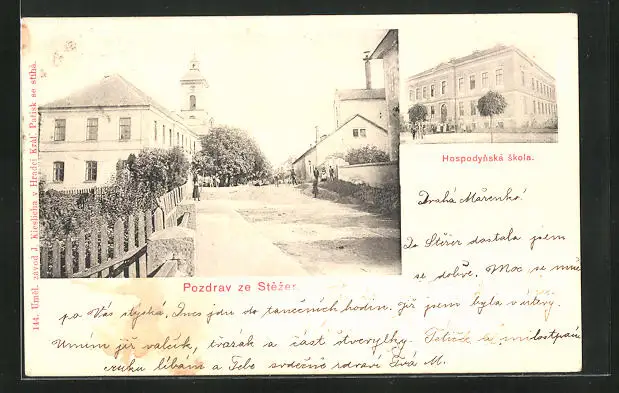 144. Uměl. závod J. Kieslicha v Hradci Král. Patisk se stíhá.
Hospodyňská škola.
Pozdrav ze Stěžer
Drahá Mařenko!
Do Stěžer dostala jsem
se dobře. Moc se mně
po Vás stýská. Dnes jdu do tanečních hodin. Již jsem byla v úterý.
Umím již valčík, třasák a část čtverylky. Tetičce a milostpaní
ruku líbám a Tebe srdečně zdraví Tvá M.